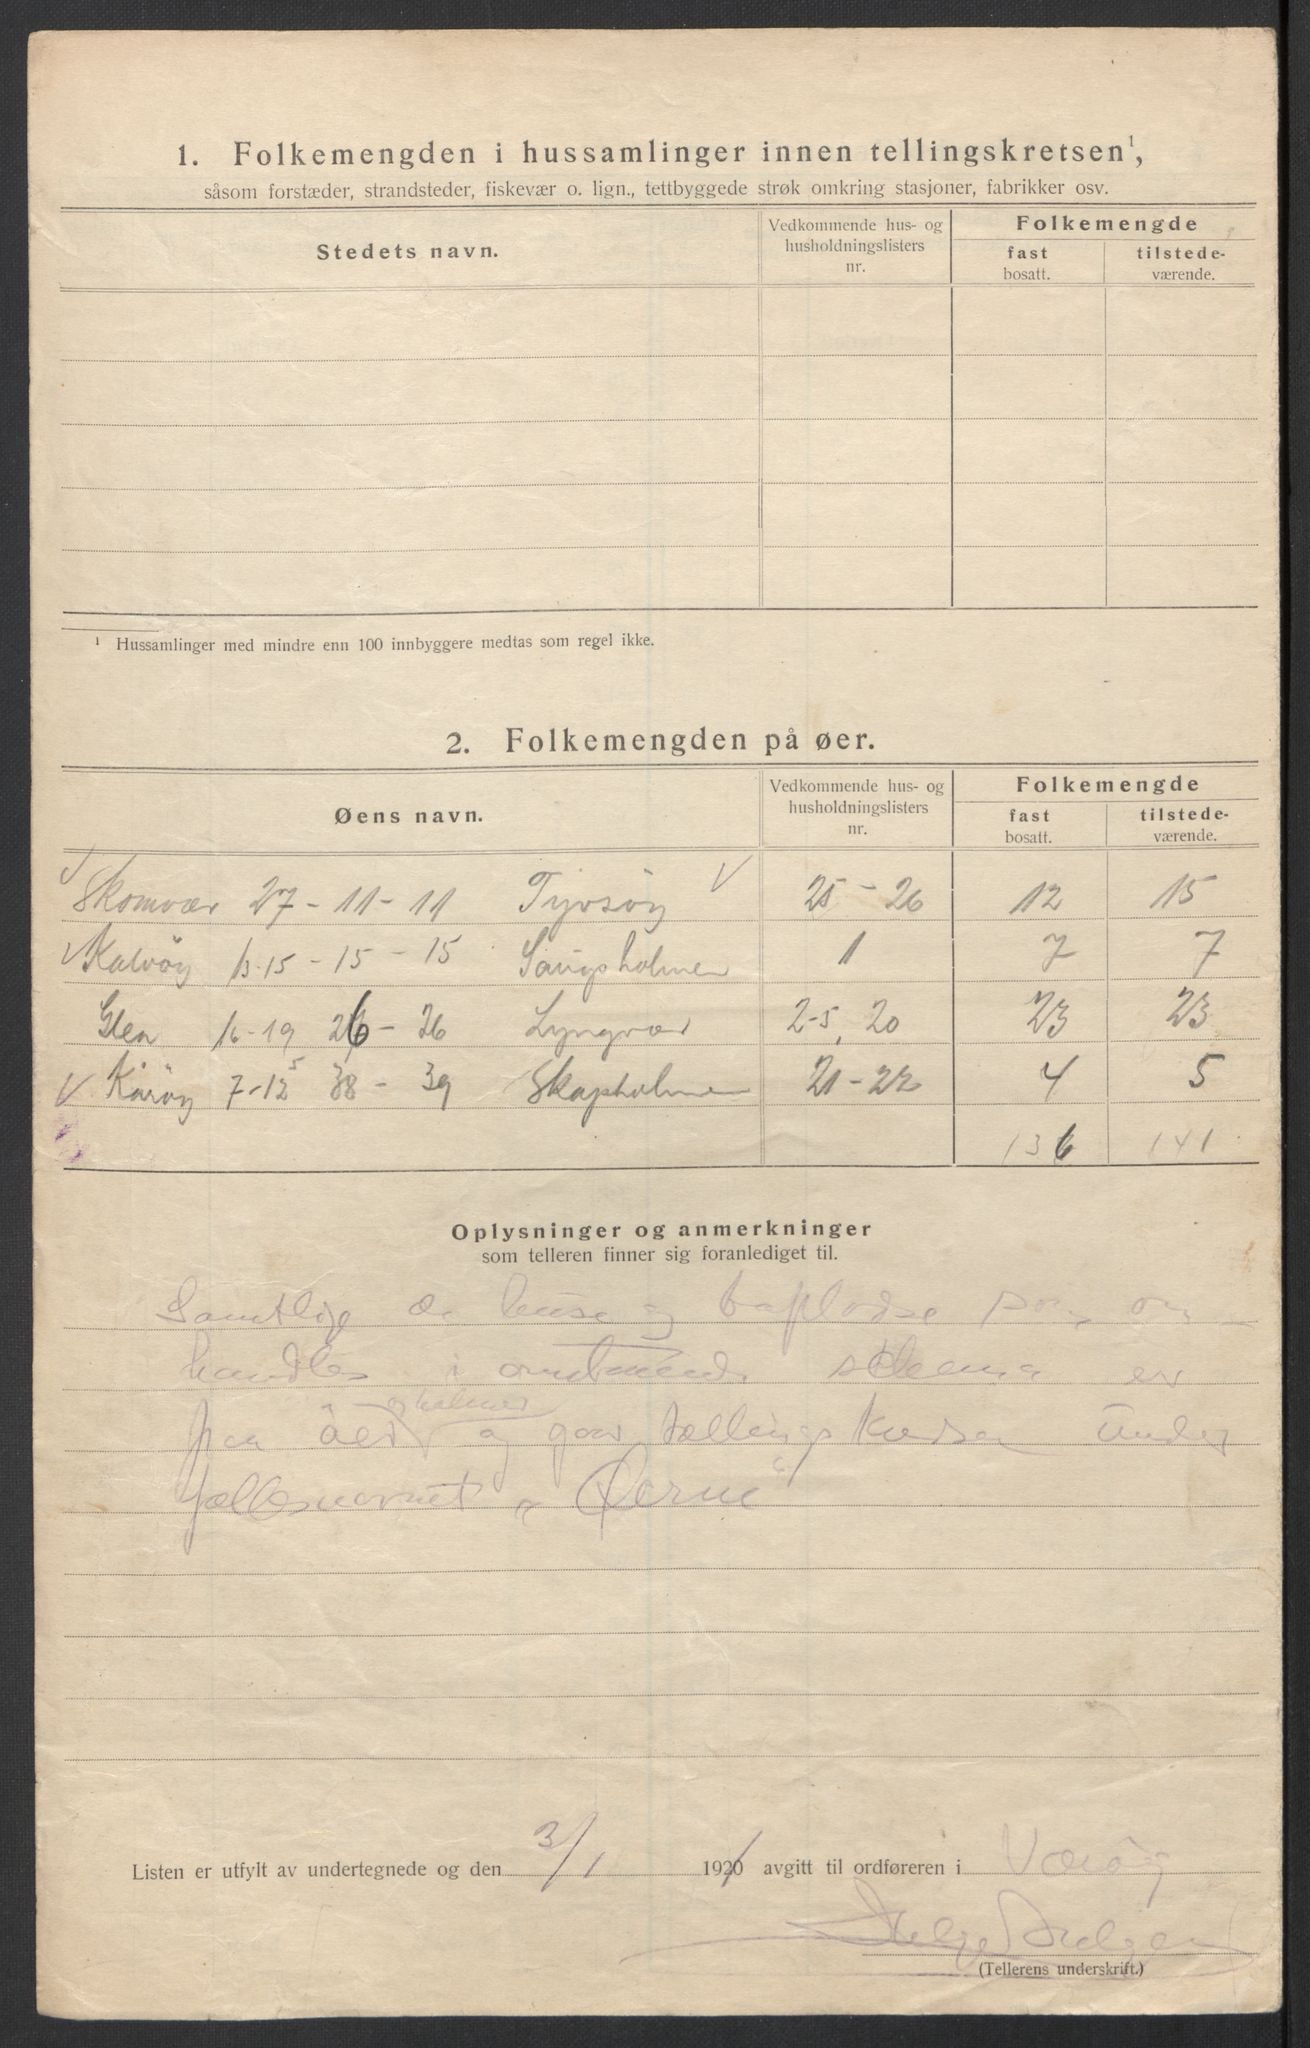 1. Folkemengden i hussamlinger innen tellingskretsen¹,
såsom forstæder, strandsteder, fiskevær o. lign., tettbyggede strøk omkring stasjoner, fabrikker osv.
Stedets navn.
Vedkommende hus- og husholdningslisters nr.
Folkemengde
fast bosatt.
tilstede-værende.
¹ Hussamlinger med mindre enn 100 innbyggere medtas som regel ikke.
2. Folkemengden på øer.
Øens navn.
Vedkommende hus- og husholdningslisters nr.
Folkemengde
fast bosatt.
tilstede-værende.
Skomvær 27 - 11 - 11 Tyvsöy 25 - 26 12 15
Kalvöy 13-15 - 15 - 15 1 7 7
Glea 16-19 26 - 26 Lyngvær 2-5, 20 23 23
Kåröy 7-12 38 - 39 Skapholmen 21-22 4 5
136 141
Oplysninger og anmerkninger
som telleren finner sig foranlediget til.
Samtlige de huse og som om-
handles i skema er
paa öer og holmer og gaar tællingskredsen under
fællesnavnet „Øerne“
Listen er utfylt av undertegnede og den 3/1 1921 avgitt til ordføreren i Værøy
Helge Helgesen
(Tellerens underskrift.)